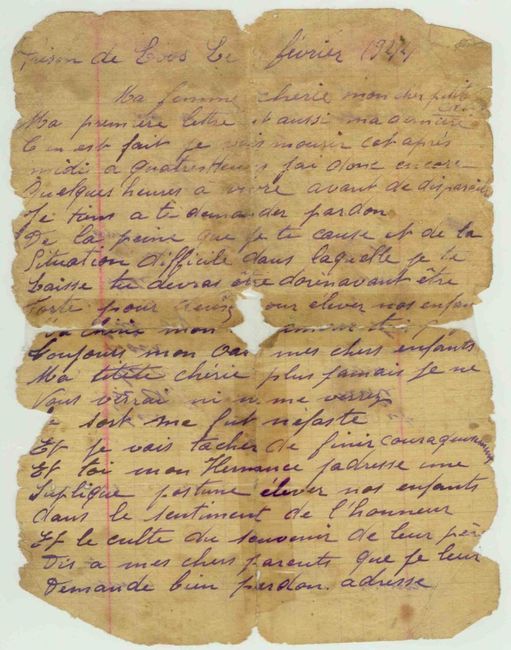 Prison de Loos Le février 1944
Ma femme chérie mon cher petit
Ma première lettre et aussi ma dernière
C en est fait je vais mourir cet après
midi a quatres heures j'ai donc encore
Quelques heures a vivre avant de disparaitre
Je tiens a te demander pardon
De la peine que je te cause et de la
Situation difficile dans laquelle je te
Laisse tu devras être dorénavant être
forte pour pour élever nos enfants
chérie mon
toujours mon mes chers enfants
Ma titite chérie plus jamais je ne
Vous verrai ni me verrez
Le sort me fut néfaste
Et je vais tacher de finir courageusement
Et toi mon Hermance j'adresse une
Suplique postune élever nos enfants
dans le sentiment de l'honneur
Et le culte du souvenir de leur père
Dis a mes chers parents que je leur
Demande bien pardon. adresse